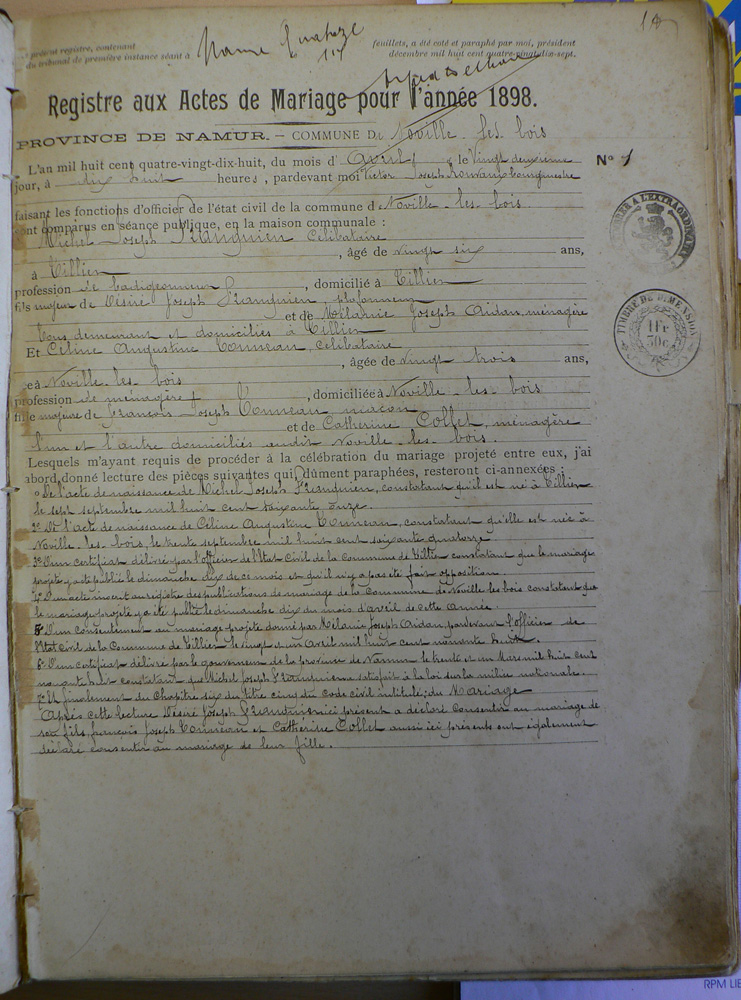 14
présent registre, contenant
feuillets, a été coté et paraphé par moi, président
du tribunal de première instance séant à Namur
décembre mil huit cent quatre-vingt-dix-sept.
Registre aux Actes de Mariage pour l'année 1898.
PROVINCE DE NAMUR. — COMMUNE DE Noville-les-bois
L'an mil huit cent quatre-vingt-dix-huit, du mois d' Avril, le Vingt deuxième
N° 1
jour, à dix huit heures, pardevant moi Victor Joseph bourgmestre
faisant les fonctions d'officier de l'état civil de la commune de Noville-les-bois
sont comparus en séance publique, en la maison communale :
Michel Joseph Célibataire
, âgé de vingt six ans,
à Tillier
profession de badigeonneur, domicilié à Tillier
fils majeur de Désiré Joseph plafonneur
et de Mélanie Joseph Aidan, ménagère
tous demeurant et domiciliés à Tillier
Et Céline Augustine Tonneau, célibataire
, âgée de vingt trois ans,
née à Noville-les-bois
profession de ménagère, domiciliée à Noville-les-bois
fille majeure de François Joseph Tonneau maçon
et de Catherine Collet, ménagère
l'un et l'autre domiciliés audit Noville-les-bois.
Lesquels m'ayant requis de procéder à la célébration du mariage projeté entre eux, j'ai
abord donné lecture des pièces suivantes qui, dûment paraphées, resteront ci-annexées :
1° De l'acte de naissance de Michel Joseph constatant qu'il est né à Tillier
le sept septembre mil huit cent soixante onze.
2° De l'acte de naissance de Céline Augustine Tonneau, constatant qu'elle est née à
Noville-les-bois, le trente septembre mil huit cent soixante quatorze
3° D'un certificat délivré par l'officier de l'Etat Civil de la Commune de Tillier constatant que le mariage
projeté y a été publié le dimanche dix de ce mois et qu'il n'y a pas été fait opposition.
4° D'un acte inscrit au registre des publications de mariage de la Commune de Noville-les-bois constatant que
le mariage projeté y a été publié le dimanche dix du mois d'avril de cette année.
5° D'un consentement au mariage projeté donné par Mélanie Joseph Aidan, pardevant l'officier de
l'Etat Civil de la Commune de Tillier le vingt et un Avril mil huit cent nonante huit.
6° D'un certificat délivré par le gouverneur de la province de Namur le trente et un Mars mil huit cent
nonante huit constatant que Michel Joseph a satisfait à la loi sur la milice nationale.
7° Et finalement du Chapitre six du titre cinq du Code civil intitulé : du Mariage
Après cette lecture Désiré Joseph ici présent a déclaré consentir au mariage de
son fils, françois Joseph Tonneau et Cathérine Collet aussi ici présents ont également
déclaré consentir au mariage de leur fille.
TIMBRE A L'EXTRAORDINAIRE
TIMBRE DE DIMENSION
1 Fr
30 c
RPM LIE